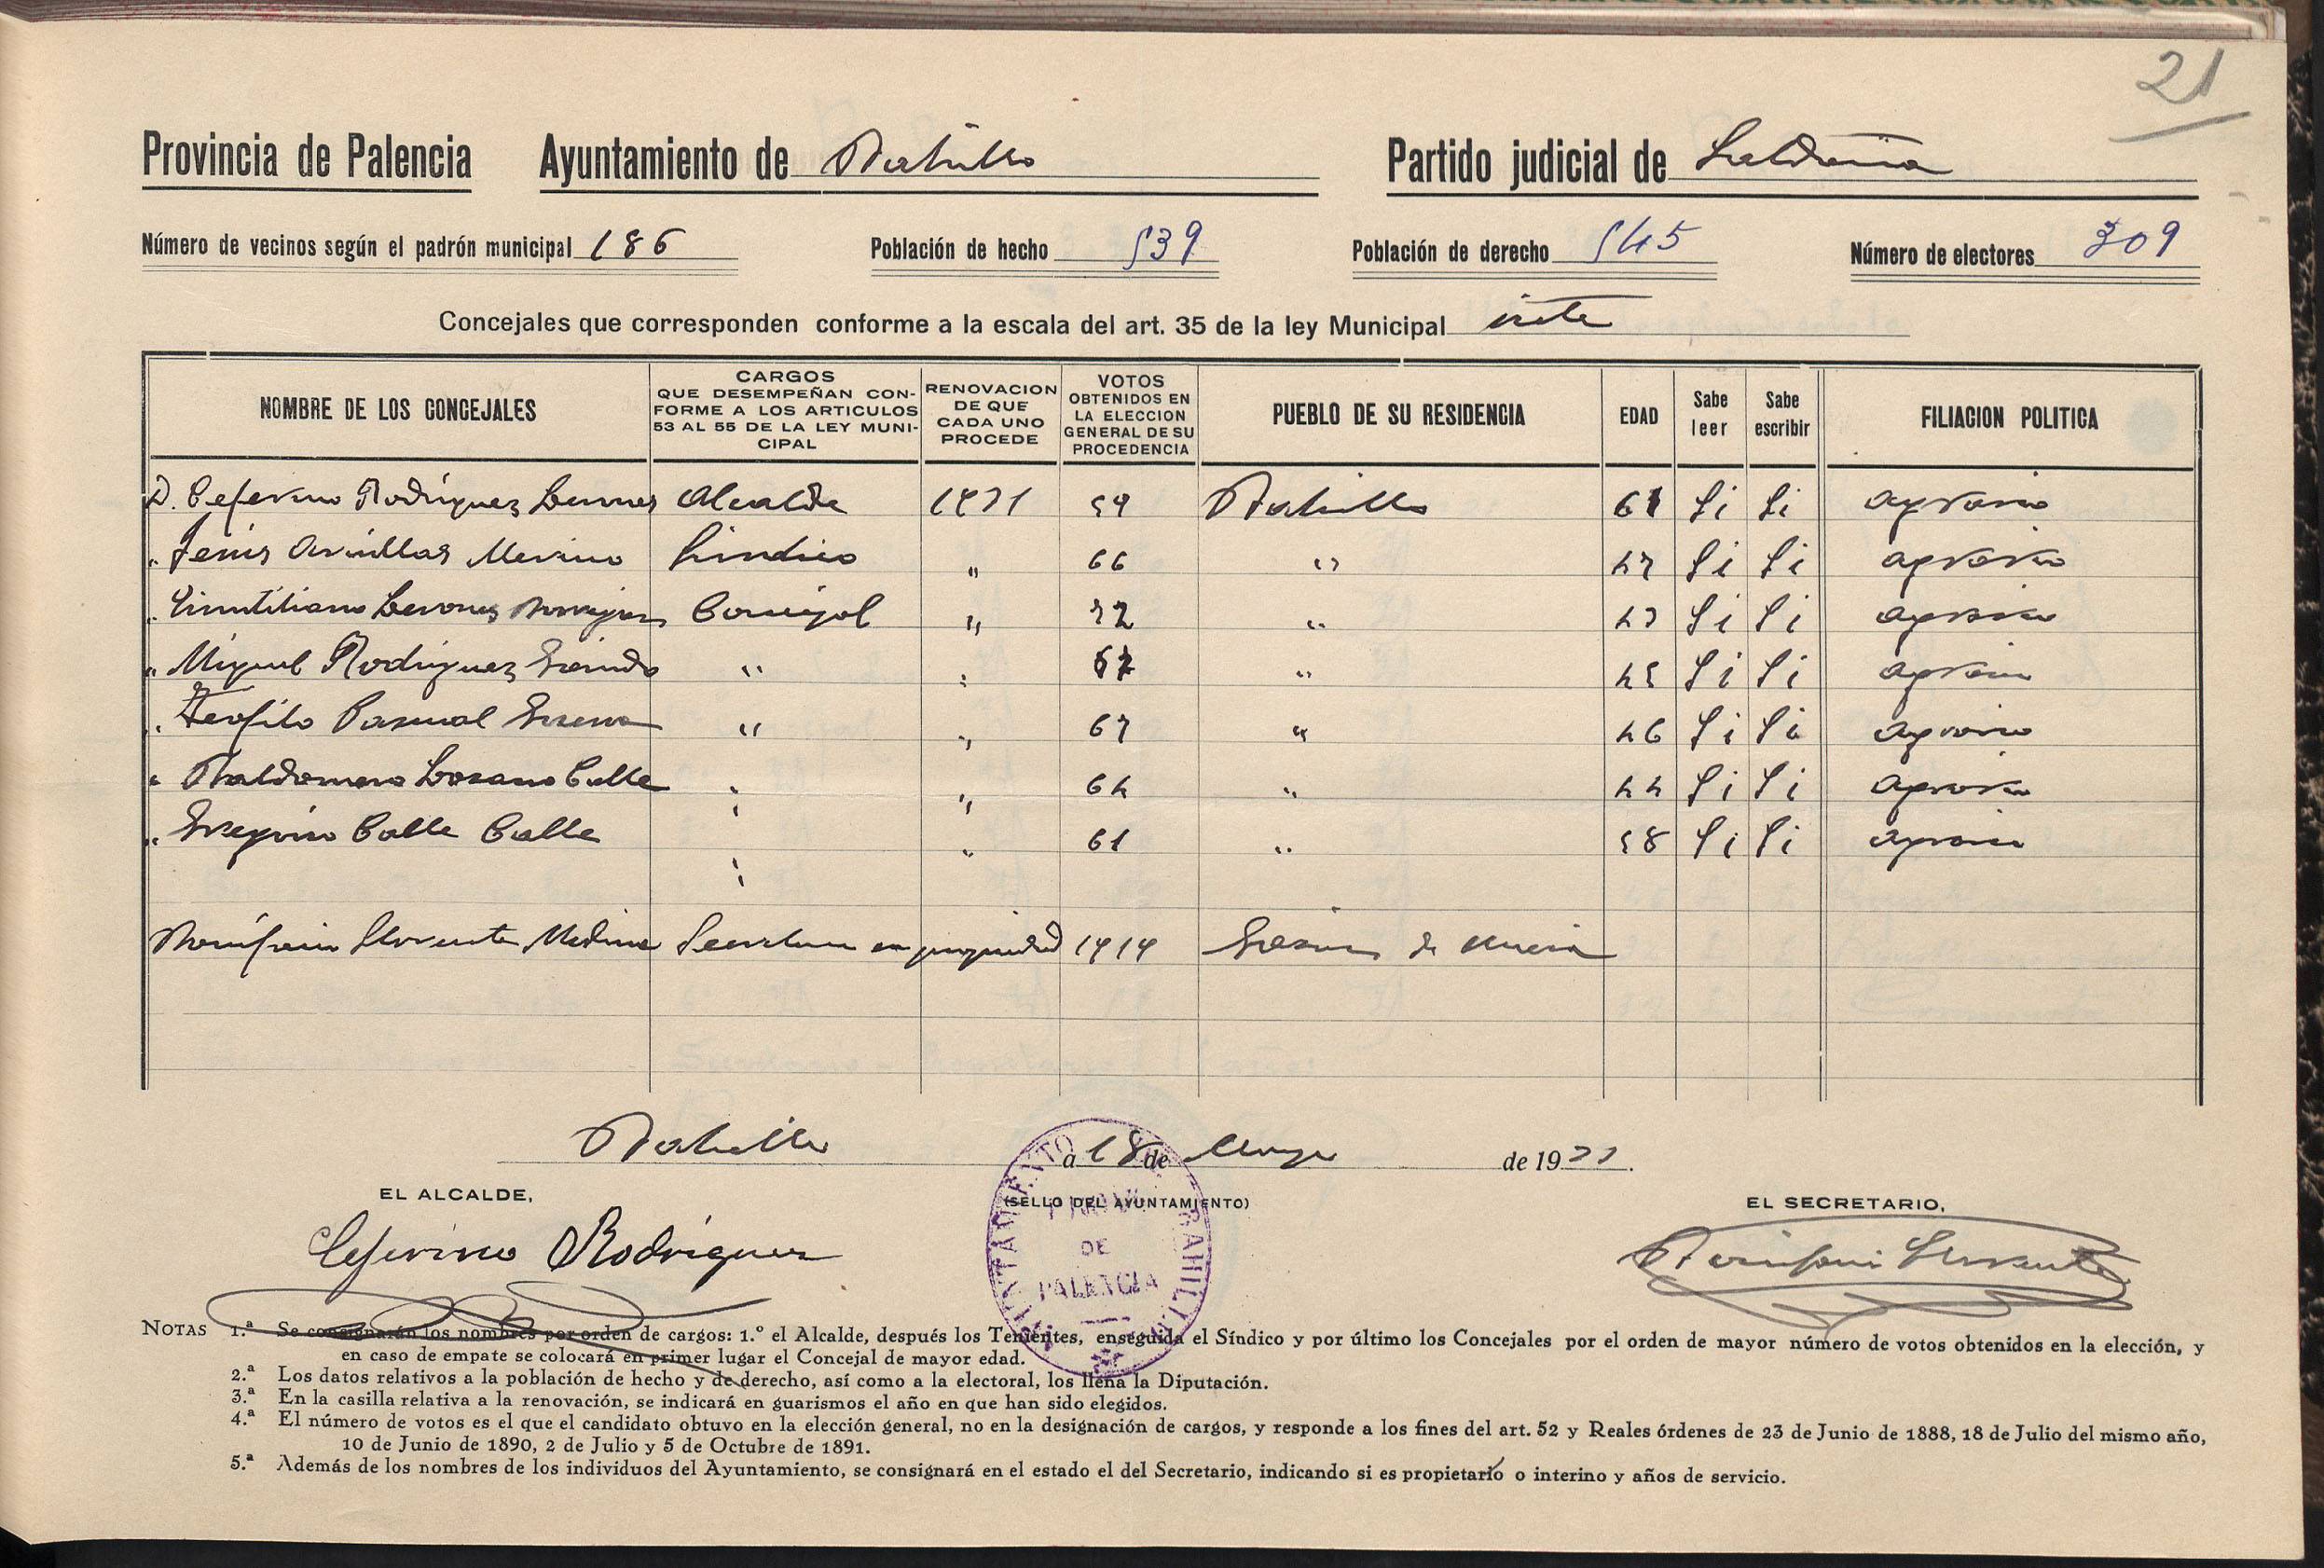 21
Provincia de Palencia Ayuntamiento de Bahillo Partido judicial de Saldaña
Número de vecinos según el padrón municipal 186 Población de hecho 539 Población de derecho 545 Número de electores 309
Concejales que corresponden conforme a la escala del art. 35 de la ley Municipal siete
NOMBRE DE LOS CONCEJALES CARGOS QUE DESEMPEÑAN CONFORME A LOS ARTICULOS 53 AL 55 DE LA LEY MUNICIPAL RENOVACION DE QUE CADA UNO PROCEDE VOTOS OBTENIDOS EN LA ELECCION GENERAL DE SU PROCEDENCIA PUEBLO DE SU RESIDENCIA EDAD Sabe leer Sabe escribir FILIACION POLITICA
D. Ceferino Rodríguez Alcalde 59 Bahillo 61 Si Si agrario
" Merino Sindico " 66 " 47 Si Si agrario
" Concejal " 72 " 43 Si Si agrario
" Miguel Rodríguez " " " 45 Si Si agrario
" Teofilo Pascual " " 67 " 46 Si Si agrario
" Baldomero Lozano Calle " " 64 " 44 Si Si agrario
" Gregorio Calle Calle " " 61 " 58 Si Si agrario
Bonifacio Llorente Medina Secretario en propiedad 1919
Bahillo a 18 de Mayo de 1933.
EL ALCALDE, (SELLO DEL AYUNTAMIENTO) EL SECRETARIO,
AYUNTAMIENTO BAHILLO
DE
PALENCIA
Ceferino Rodríguez Bonifacio Llorente
NOTAS 1.ª Se consignarán los nombres por orden de cargos: 1.º el Alcalde, después los Tenientes, enseguida el Síndico y por último los Concejales por el orden de mayor número de votos obtenidos en la elección, y
en caso de empate se colocará en primer lugar el Concejal de mayor edad.
2.ª Los datos relativos a la población de hecho y de derecho, así como a la electoral, los llena la Diputación.
3.ª En la casilla relativa a la renovación, se indicará en guarismos el año en que han sido elegidos.
4.ª El número de votos es el que el candidato obtuvo en la elección general, no en la designación de cargos, y responde a los fines del art. 52 y Reales órdenes de 23 de Junio de 1888, 18 de Julio del mismo año,
10 de Junio de 1890, 2 de Julio y 5 de Octubre de 1891.
5.ª Además de los nombres de los individuos del Ayuntamiento, se consignará en el estado el del Secretario, indicando si es propietario o interino y años de servicio.